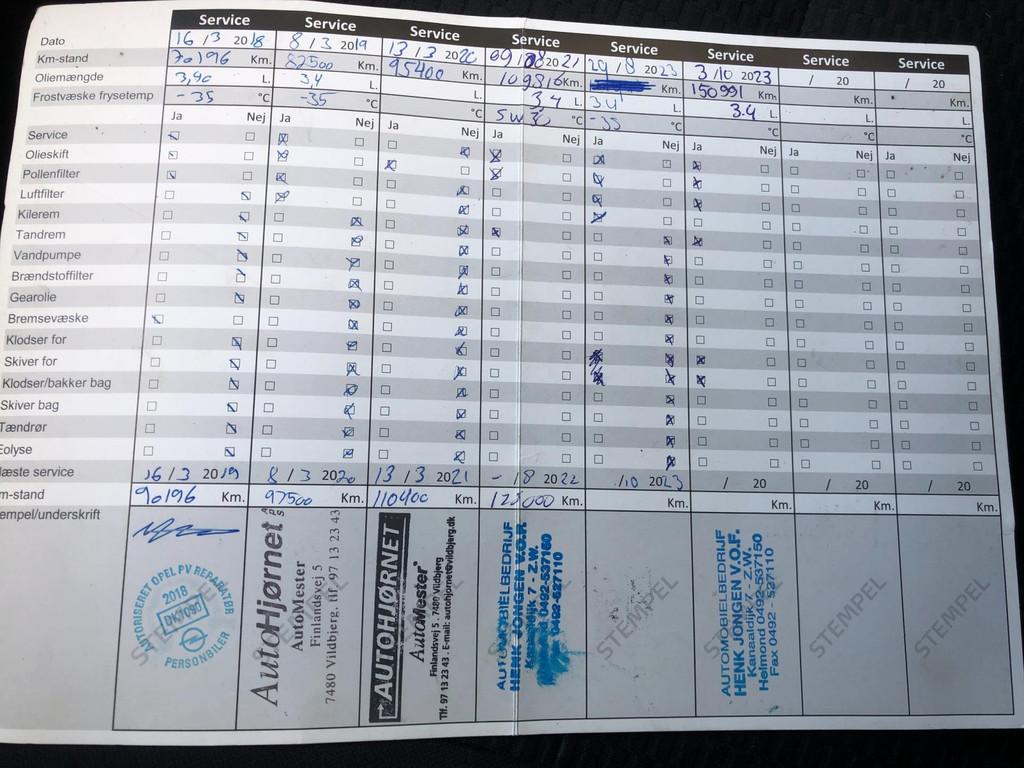 Service Service Service Service Service Service Service Service
Dato 16 / 3 2018 8 / 3 2019 13 / 3 2020 09 / 08 2021 29 / 8 2023 3 / 10 2023 / 20 / 20
Km-stand 70196 Km. 82500 Km. 95400 Km. 109816 Km. Km. 150991 Km. Km. Km.
Oliemængde 3,90 L. 3,4 L. L. 3,4 L. 3,4 L. 3.4 L. L. L.
Frostvæske frysetemp -35 °C -35 °C °C 5W30 °C -35 °C °C °C °C
Ja Nej Ja Nej Ja Nej Ja Nej Ja Nej Ja Nej Ja Nej Ja Nej
Service
Olieskift
Pollenfilter
Luftfilter
Kilerem
Tandrem
Vandpumpe
Brændstoffilter
Gearolie
Bremsevæske
Klodser for
Skiver for
Klodser/bakker bag
Skiver bag
Tændrør
Eolyse
læste service 16 / 3 2019 8 / 3 2020 13 / 3 2021 - / 8 2022 /10 2023 / 20 / 20 / 20
m-stand 90196 Km. 97500 Km. 110400 Km. 125000 Km. Km. Km. Km. Km.
empel/underskrift
AUTORISERET OPEL PV REPARATØR
2018
DK7090
PERSONBILER
AutoHjørnet
AutoMester
Finlandsvej 5
7480 Vildbjerg, tlf. 97 13 23 43
AUTOHJØRNET
AutoMester
Finlandsvej 5 . 7480 Vildbjerg
Tlf. 97 13 23 43 . E-mail: autohjornet@vildbjerg.dk
AUTOMOBIELBEDRIJF
HENK JONGEN V.O.F.
Kanaaldijk 7 - Z.W.
0492-537150
0492-527110
AUTOMOBIELBEDRIJF
HENK JONGEN V.O.F.
Kanaaldijk 7 - Z.W.
Helmond 0492-537150
Fax 0492 - 527110
STEMPEL
STEMPEL
STEMPEL